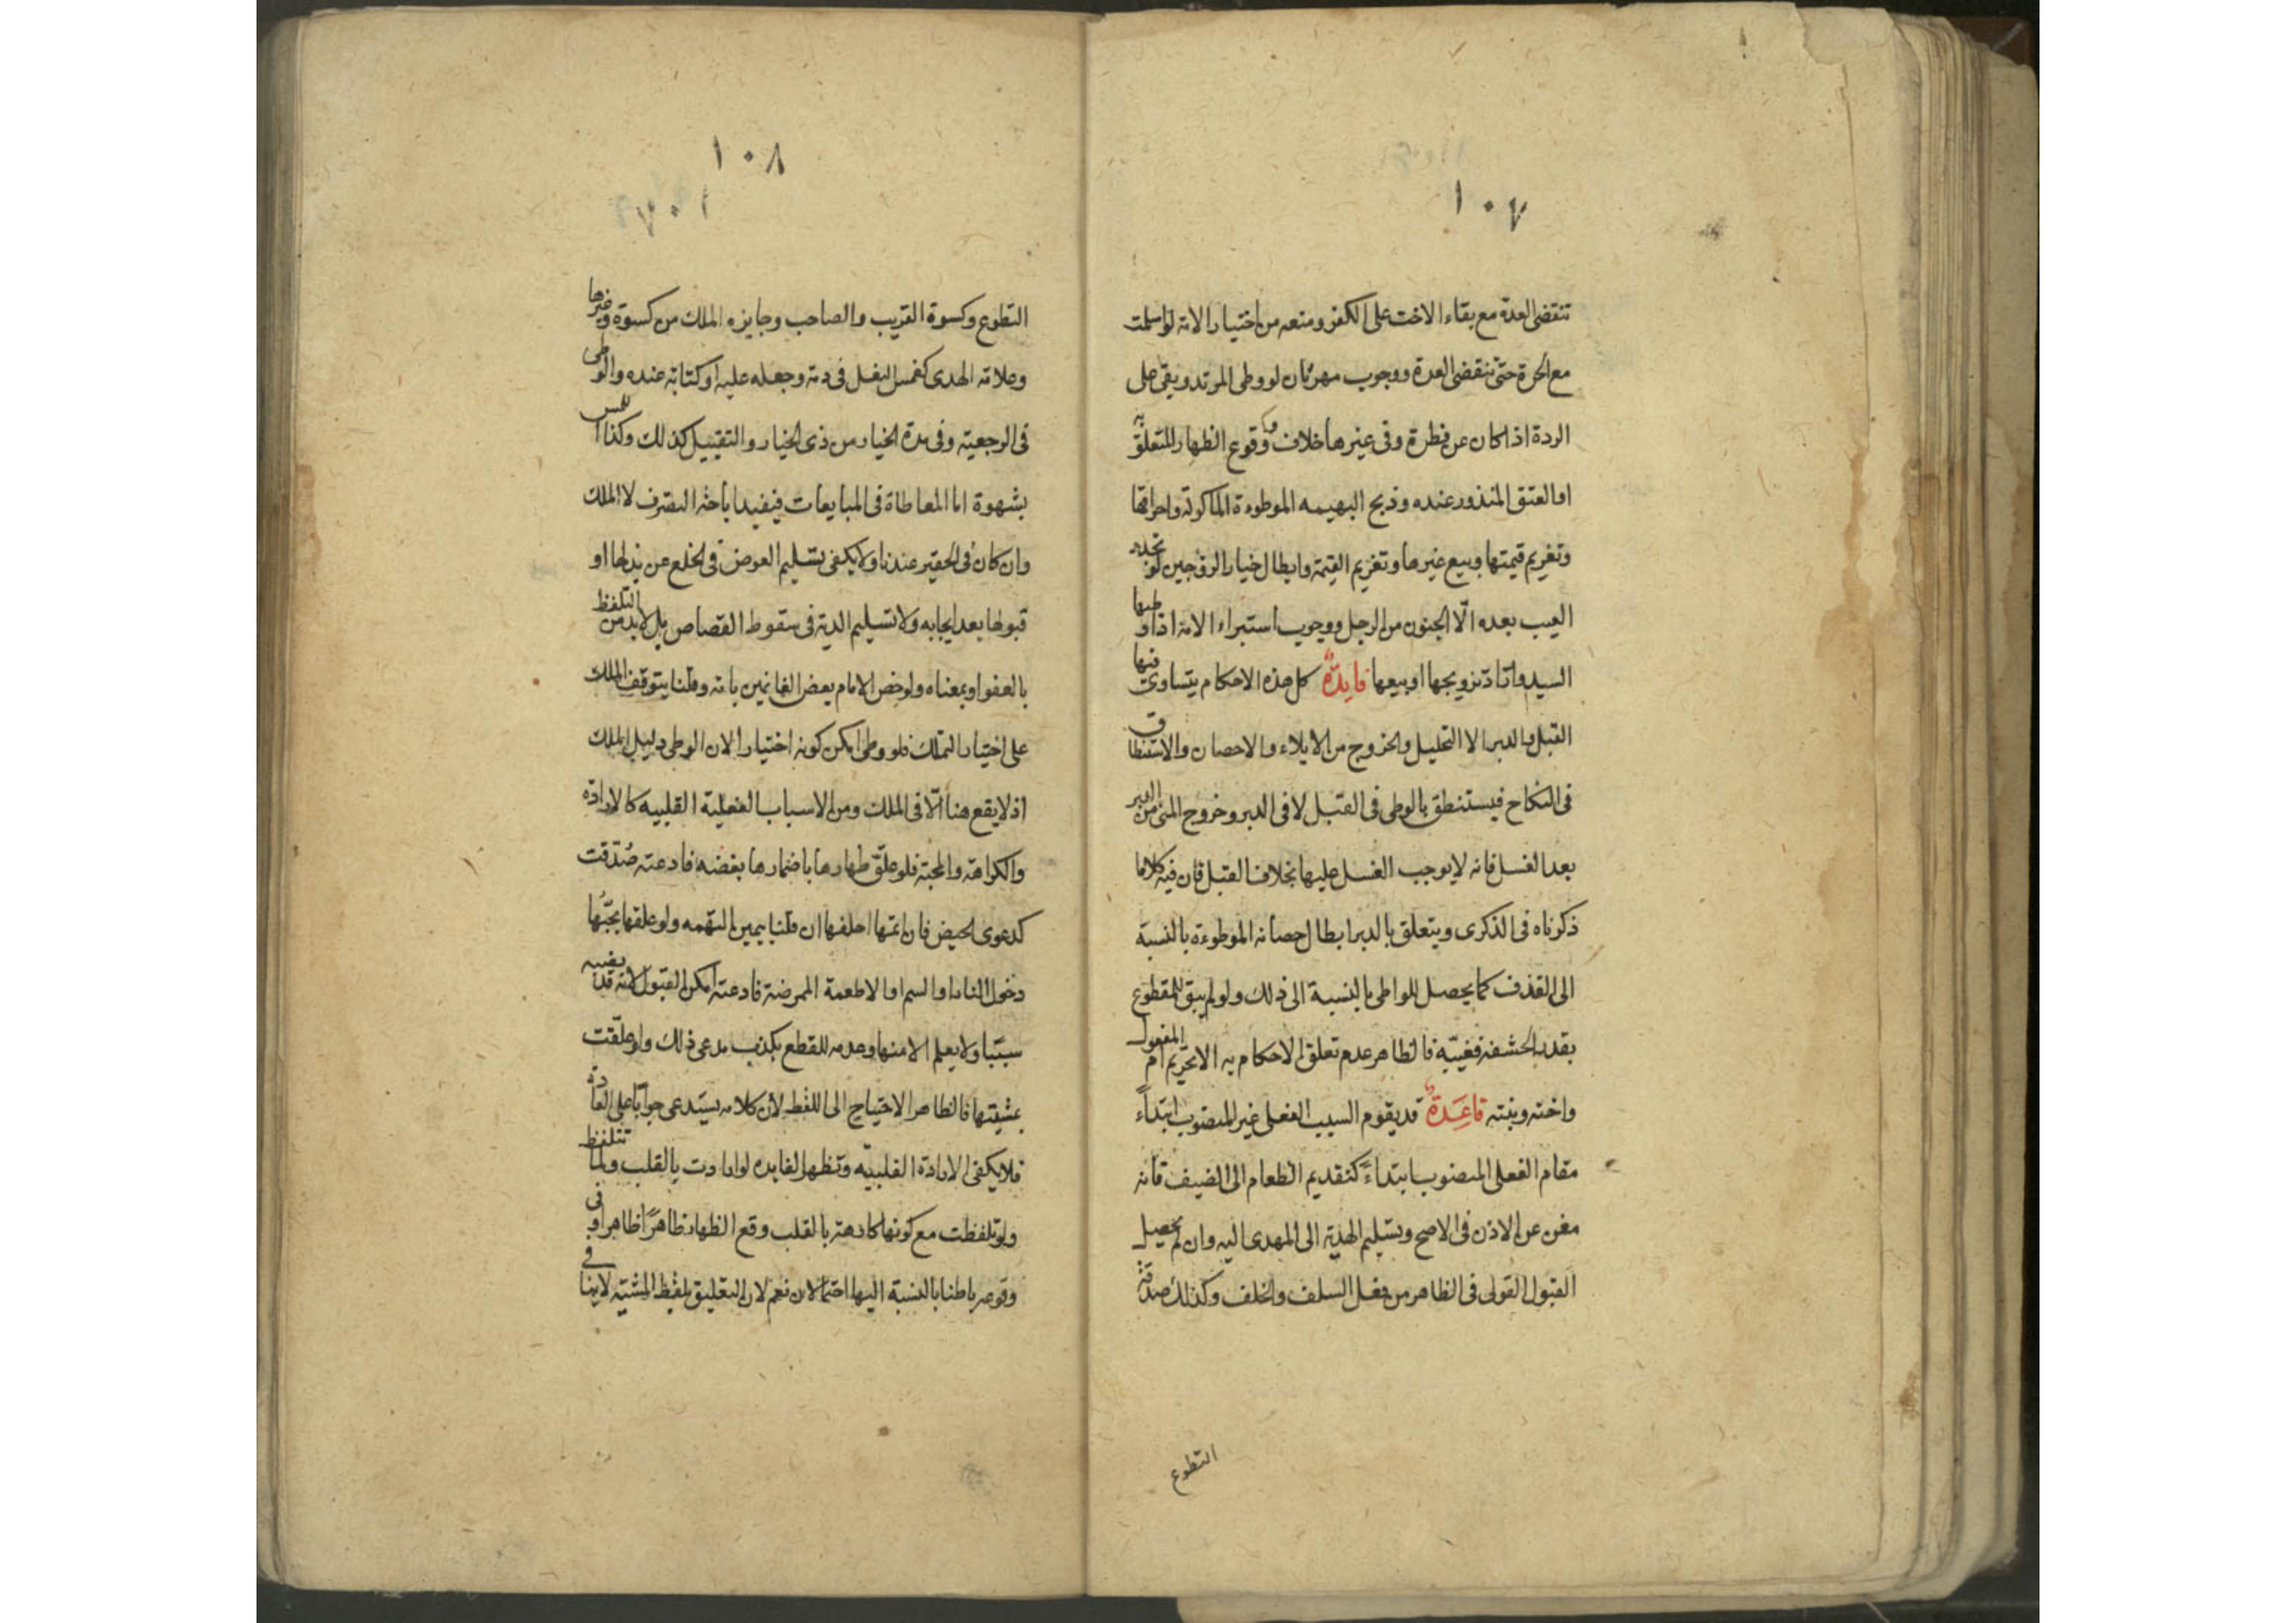 ١٠٧
تنقضى العدة مع بقاء الاخت على الكفر ومنعه من اختيار الامة لو اسلمت
مع الحرة حتى تنقضى العدة ووجوب مهر ثان لو وطى المرتد وبقى على
الردة اذا كان عن فطرة وفى غيرها خلاف ووقوع الظهار المتعلق به
او العتق المنذور عنده وذبح البهيمه الموطوءة الماكولة واحراقها
وتغريم قيمتها وبيع غيرها وتغريم القيمة وابطال خيار الزوجين لو تجدد
العيب بعده الّا الجنون من الرجل ووجوب استبراء الامة اذا وطيها
السيد واراد تزويجها او بيعها فايدة كل هذه الاحكام يتساوى فيها
القبل والدبر الا التحليل والخروج من الايلاء والاحصان والاستنطاق
فى النكاح فيستنطق بالوطى فى القبل لا فى الدبر وخروج المنى من الدبر
بعد الغسل فانه لا يوجب الغسل عليها بخلاف القبل فان فيه كلاما
ذكرناه فى الذكرى ويتعلق بالدبر ابطال حصانه الموطوءة بالنسبة
الى القذف كما يحصل للواطى بالنسبة الى ذلك ولو لم يبق للمقطوع
بقدر الحشفة فغيبه فالظاهر عدم تعلق الاحكام به الا تحريم ام المفعول
واخته وبنته قاعدة قد يقوم السبب الفعلى غير المنصوب ابتداء
مقام الفعلى المنصوب ابتداء كتقديم الطعام الى الضيف فانه
مغن عن الاذن فى الاصح وتسليم الهدية الى المهدى اليه وان لم يحصل
القبول القولى فى الظاهر من فعل السلف والخلف وكذلك صدقة
التطوع
١٠٨
التطوع وكسوة القريب والصاحب وجايزه الملك من كسوة وغيرها
وعلامة الهدى كغمس النعل فى دمه وجعله عليه او كتابة عنده والوطى
فى الرجعيه وفى مدة الخيار من ذى الخيار والتقبيل كذلك وكذا اللمس
بشهوة اما المعاطاة فى المبايعات فيفيد اباحة التصرف لا الملك
وان كان فى الحقير عندنا ولا يكفى تسليم العوض فى الخلع عن بذلها او
قبولها بعد ايجابه ولا تسليم الدية فى سقوط القصاص بل لابد من التلفظ
بالعفو او بمعناه ولو خص الامام بعض الغانمين بامة وقلنا يتوقف الملك
على اختيار التملك فلو وطى امكن كونه اختيارا لان الوطى دليل الملك
اذ لا يقع هنا الّا فى الملك ومن الاسباب الفعلية القلبيه كالارادة
والكراهة والمحبة فلو علّق ظهارها باضمارها بغضه فادعته صُدّقت
كدعوى الحيض فان اتهمها احلفها ان قلنا بيمين التهمه ولو علقها بحبّها
دخول النار او السم او الاطعمة الممرضة فادعته امكن القبول لانه قد يغيب
سببا ولا يعلم الا منها وعدمه للقطع بكذب مدعى ذلك ولو علّقت
بمشيتها فالظاهر الاحتياج الى اللفظ لان كلامه يستدعى جوابا على العادة
فلا يكفى الارادة القلبيّه وتظهر الفايده لو ارادت بالقلب ولما تتلفظ
ولو تلفظت مع كونها كارهة بالقلب وقع الظهار ظاهرًا ظاهرا وفى
وقوعه باطنا بالنسبة اليها احتمالان نعم لان التعليق بلفظ المشية لا بما فى